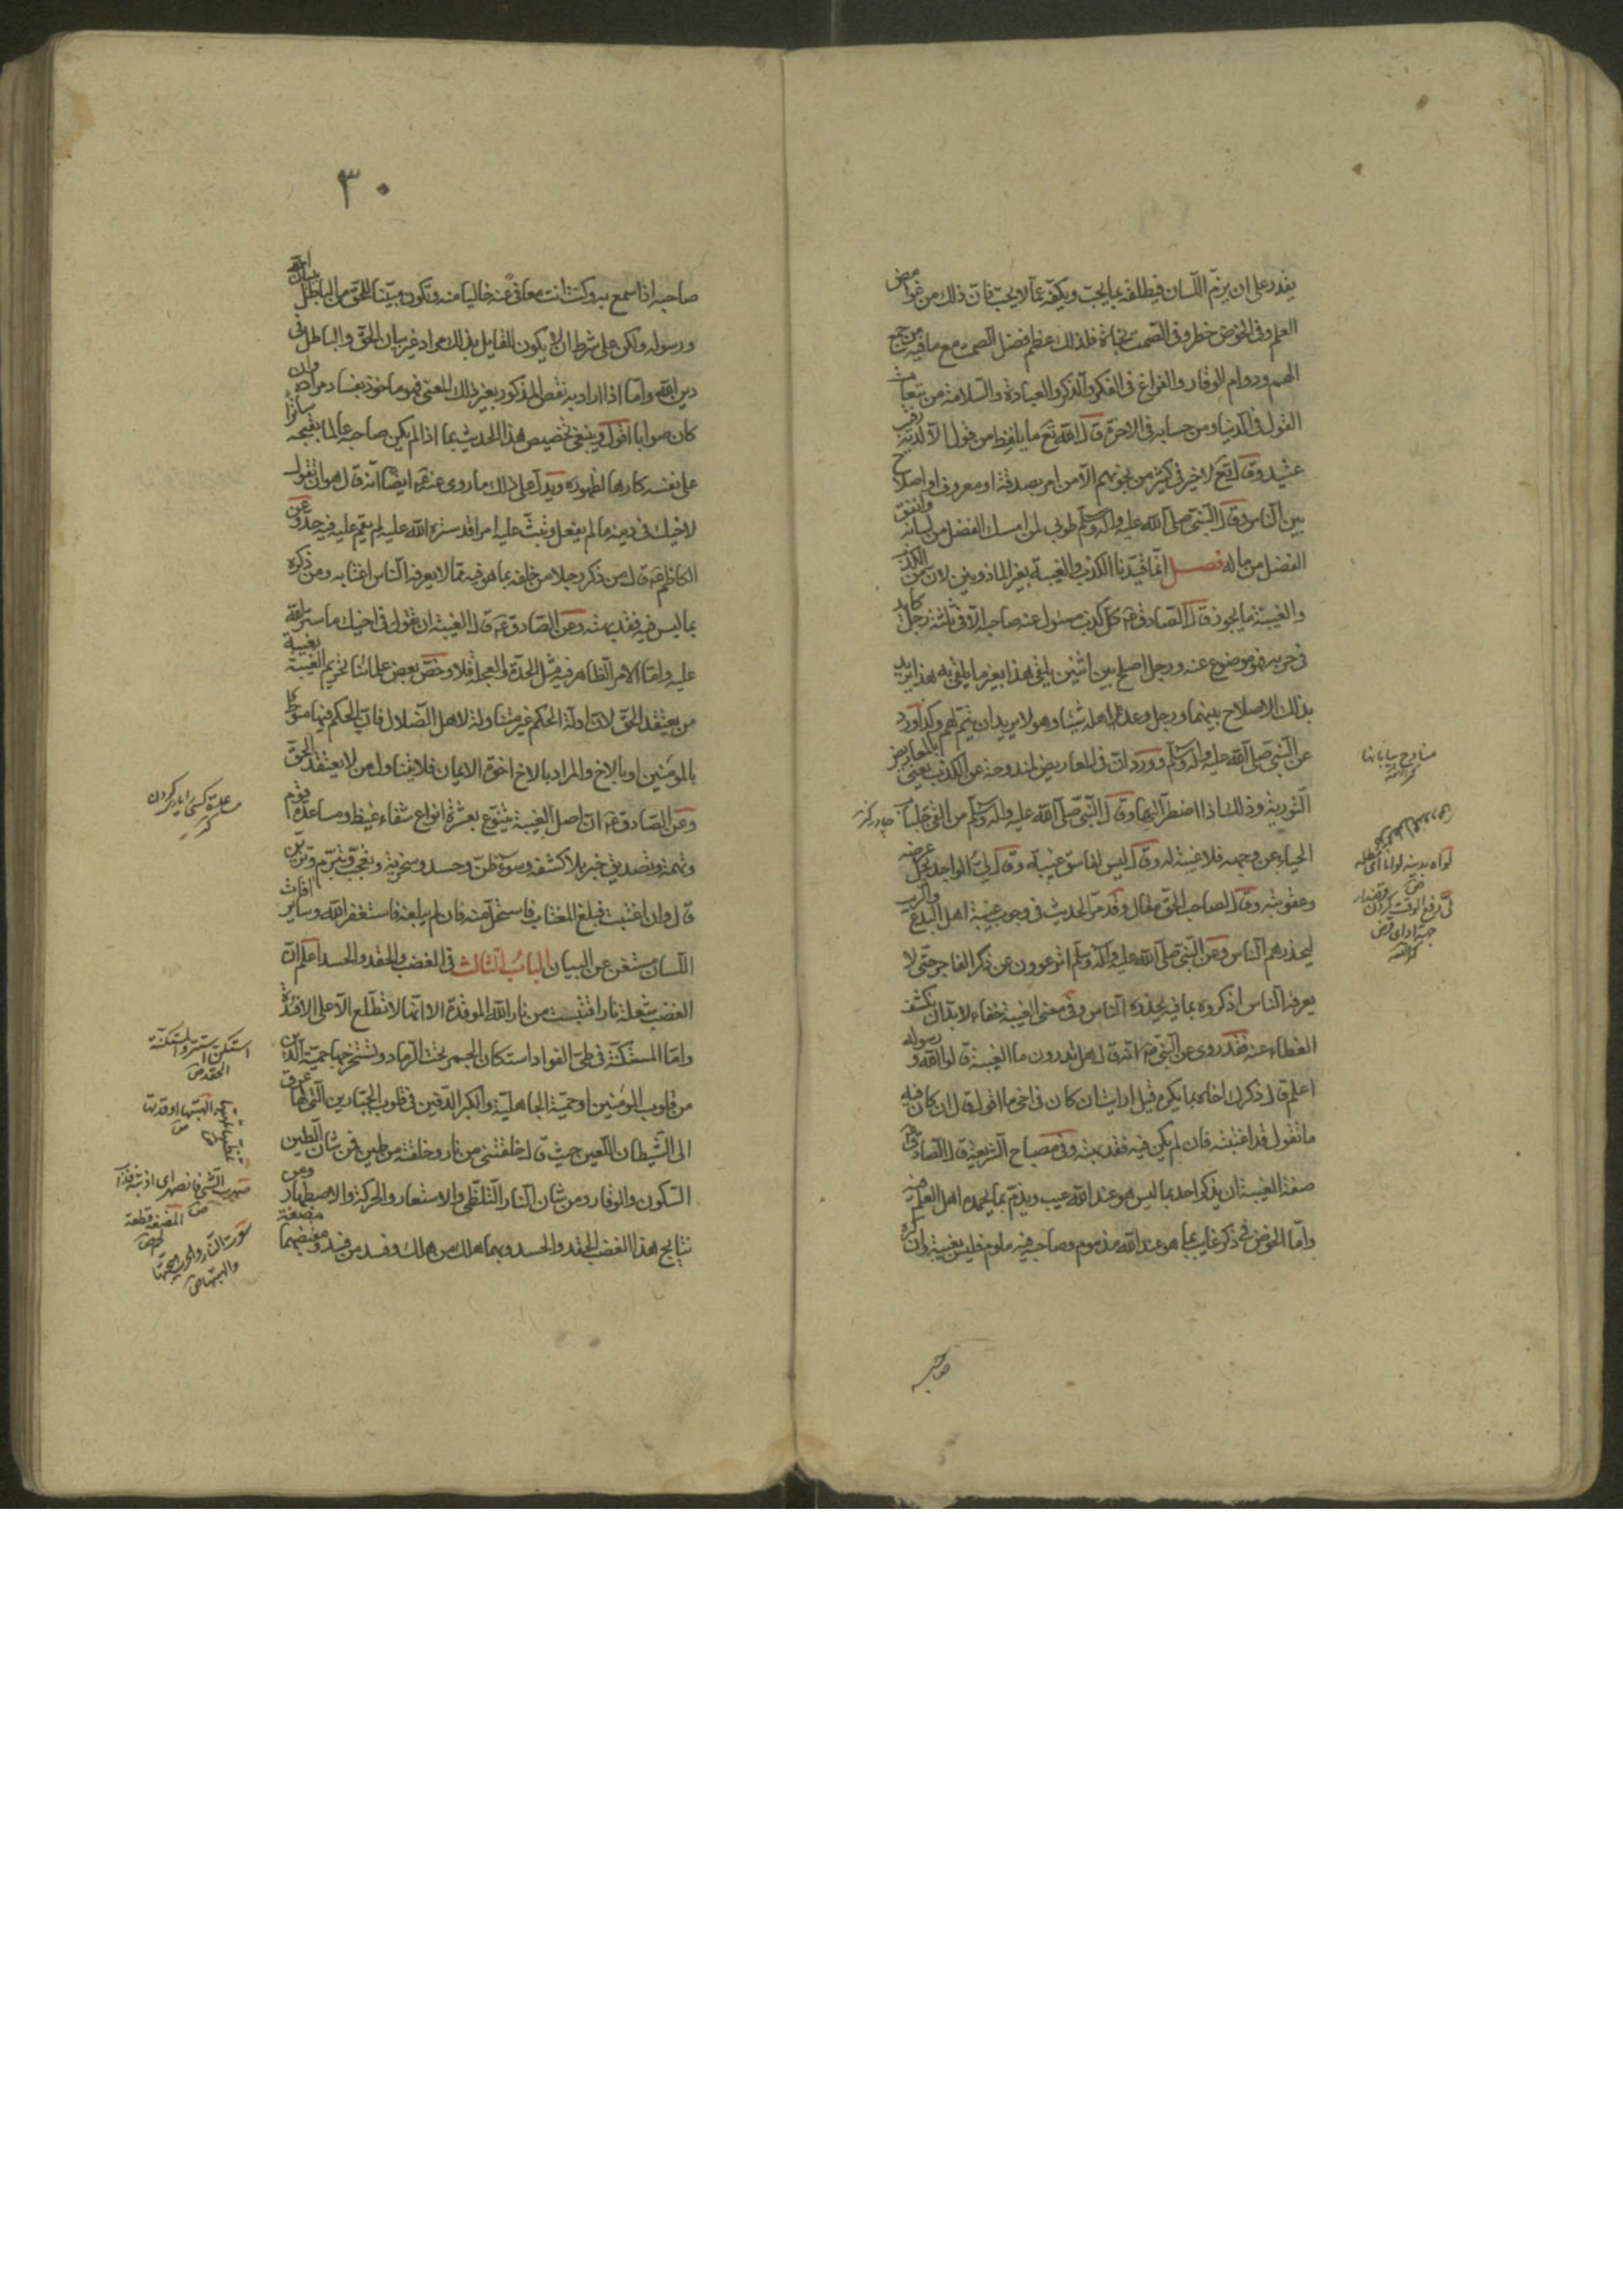 يقدر على ان يزمّ اللسان فيطلقه بما يحب ويكفه عما لا يحب فان ذلك من غوامض
العلم وفى الخوض خطر وفى الصمت نجاة فلذلك عظم فضل الصمت مع ما فيه من جمع
الهم ودوام الوقار والفراغ فى الفكر والذكر والعبادة والسلامة من تبعات
القول فى الدنيا ومن حسابه فى الاخرة قال الله تع ما يلفظ من قول الا لديه رقيب
عتيد وقال تع لا خير فى كثير من نجويهم الا من امر بصدقة او معروف او اصلاح
بين الناس وقال النبى صلى الله عليه واله وسلم طوبى لمن امسك الفضل من لسانه وانفق
الفضل من ماله فصل انما قيدنا الكذب والغيبة بغير الماذونين لان من الكذب
والغيبة ما يجوز قال الصادق ع كل كذب مسئول عنه صاحبه الا فى ثلثة رجل كايد
فى حربه فهو موضوع عنه ورجل اصلح بين اثنين يلقى هذا بغير ما يلقى به هذا يريد
بذلك الاصلاح بينهما ورجل وعد اهله شيئا وهو لا يريد ان يتم لهم وكذا ورد
عن النبى صلى الله عليه واله وسلم وورد ان فى المعاريض لمندوحة عن الكذب يعنى بالمعاريض
التورية وذلك اذا اضطر اليها وقال النبى صلى الله عليه واله وسلم من القى جلباب
الحياء عن وجهه فلا غيبة له وقال ليس لفاسق غيبة وقال لىّ الواجد يحل عرضه
وعقوبته وقال لصاحب الحق مقال وقد مر الحديث فى وجوب غيبة اهل البدع والريب
ليحذرهم الناس وعن النبى صلى الله عليه واله وسلم اترعوون عن ذكر الفاجر حتى لا
يعرفه الناس اذكروه بما فيه يحذره الناس وفى معنى الغيبة خفاء لا بد ان نكشف
الغطاء عنه فقد روى عن النبى ص انه قال هل تدرون ما الغيبة قالوا الله ورسوله
اعلم قال ذكرك اخاك بما يكره قيل ارايت ان كان فى اخى ما اقول قال ان كان فيه
ما تقول فقد اغتبته فان لم يكن فيه فقد بهته وفى مصباح الشريعة قال الصادق ع
صفة الغيبة ان يذكر احد بما ليس هو عند الله عيب ويذم بما يحمده اهل العلم فيه
واما الخوض فى ذكر غايب بما هو عند الله مذموم وصاحبه فيه ملوم فليس بغيبة وان كره
صاحبه
منادح بيابانها
كنز اللغة
چادر كنز
جهة اداى قرض
كنز اللغة
٣٠
صاحبه اذا سمع به وكنت انت معافى عنه خاليا منه وتكون مبينا للحق من الباطل ببيان الله
ورسوله ولكن على شرط ان لا يكون للقايل بذلك مراد غير بيان الحق والباطل فى
دين الله واما اذا اراد به نقص المذكور بغير ذلك المعنى فهو ماخوذ بفساد مراده وان
كان صوابا اقول وينبغى تخصيص هذا الحديث بما اذا لم يكن صاحبه عالما بقبحه ساترا
على نفسه كارها لظهوره ويدل على ذلك ما روى عنه ع ايضا انه قال هو ان تقول
لاخيك فى دينه ما لم يفعل وتبث عليه امرا قد ستره الله عليه لم يقم عليه فيه حد وعن
الكاظم ع قال من ذكر رجلا من خلفه بما هو فيه مما لا يعرفه الناس اغتابه ومن ذكره
بما ليس فيه فقد بهته وعن الصادق ع قال الغيبة ان تقول فى اخيك ما ستره الله
عليه واما الامر الظاهر فيه مثل الحدة والعجلة فلا وخص بعض علمائنا تحريم الغيبة بغيبة
من يعتقد الحق لان ادلة الحكم غير متناولة لاهل الضلال فان الحكم فيها منوط
بالمؤمنين او بالاخ والمراد بالاخ اخوة الايمان فلا يتناول من لا يعتقد الحق
وعن الصادق ع ان اصل الغيبة يتنوع بعشرة انواع شفاء غيظ ومساعدة قوم
وتهمة وتصديق خبر بلا كشفه وسوء ظن وحسد وسخرية وتعجب وتبرم وتزين
قال وان اغتبت فبلغ المغتاب فاستحل منه فان لم يبلغه فاستغفر الله وساير افات
اللسان مستغن عن البيان الباب الثالث فى الغضب والحقد والحسد اعلم ان
الغضب شعلة نار اقتبست من نار الله الموقدة الا انها لا تطلع الا على الافئدة
وانها المستكنة فى طى الفواد استكنان الجمر تحت الرماد وتستخرجها حمية الدين
من قلوب المؤمنين او حمية الجاهلية والكبر الدفين فى قلوب الجبارين التى لها عرق
الى الشيطان اللعين حيث قال خلقتنى من نار وخلقته من طين فمن شان الطين
السكون والوقار ومن شان النار التلظى والاستعار والحركة والاصطهار ومن
نتايج هذا الغضب الحقد والحسد وبهما هلك من هلك وفسد من فسد ومفيضهما مضغة
مساعدة كسى را يارى كردن
كنز
استكن استتر والمستكنة
الحقد ص
المضغة قطعة
لحم ص